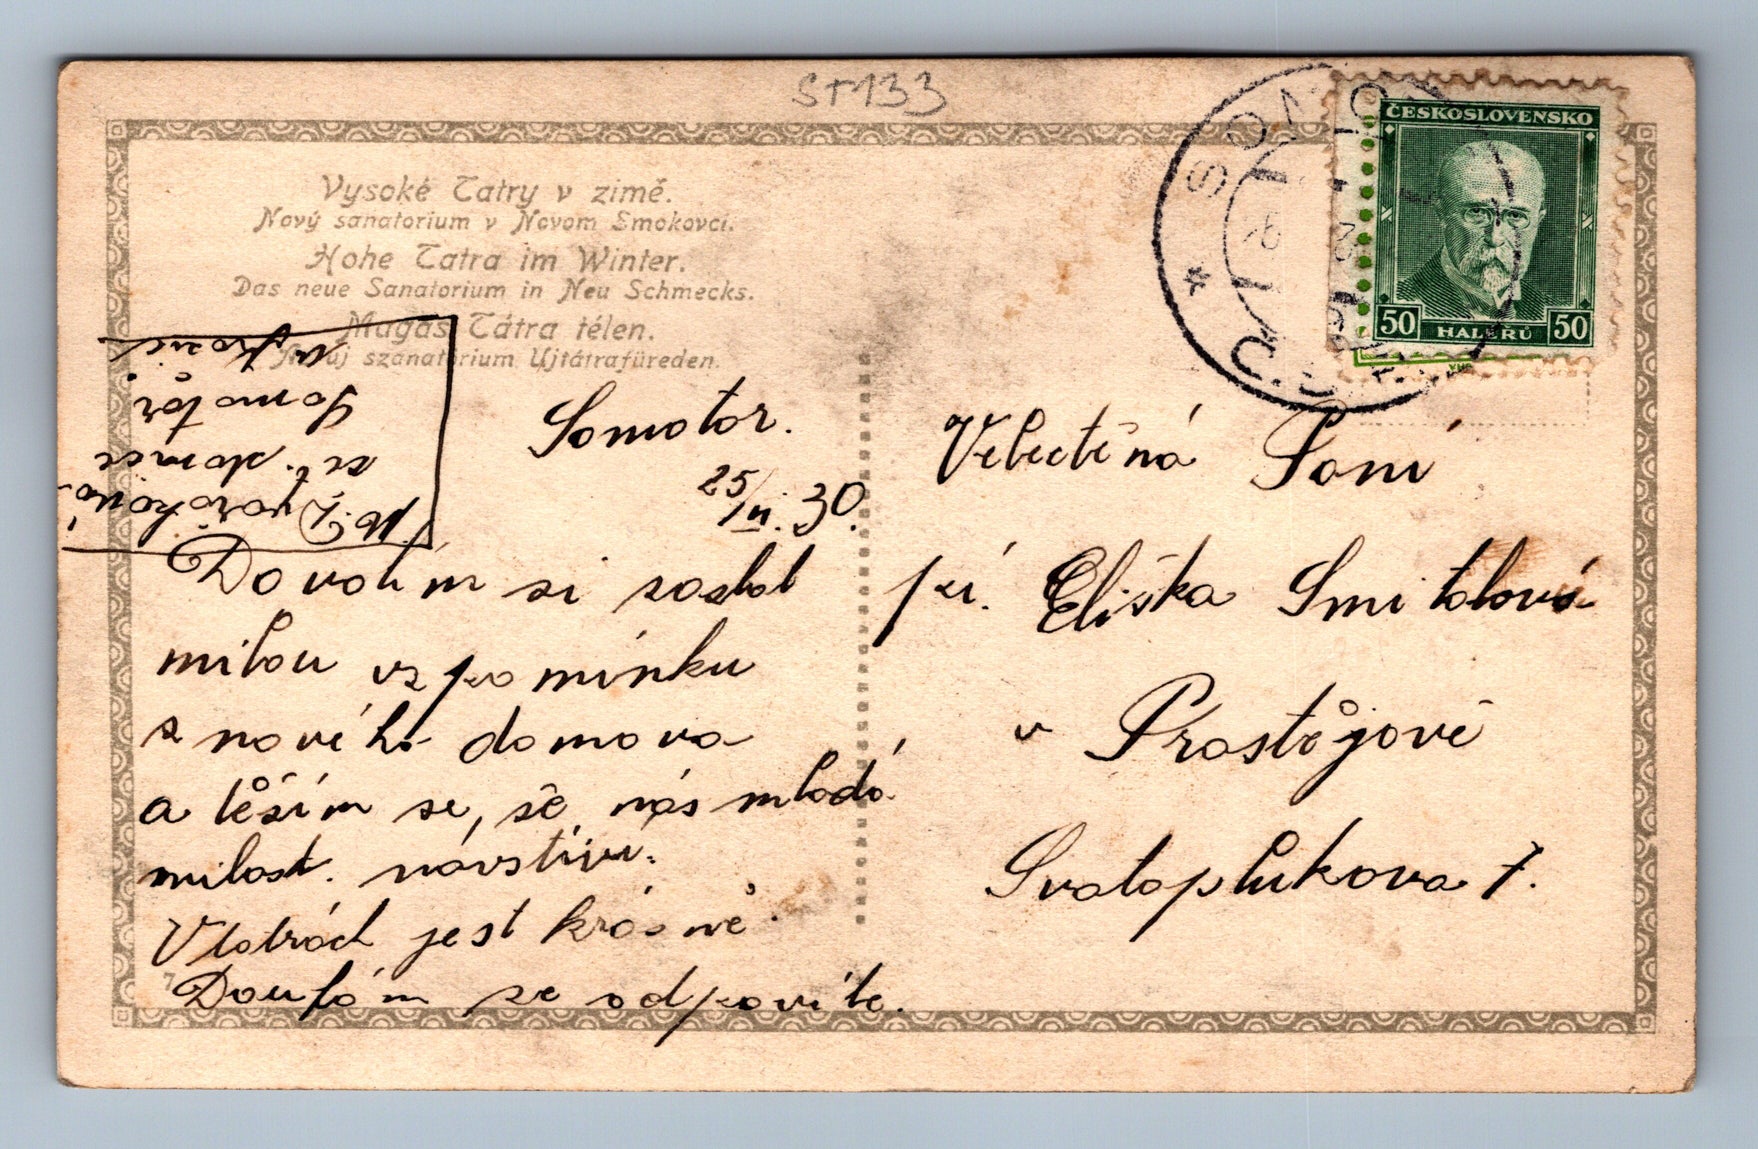 ST133
Vysoké Tatry v zimě.
Nový sanatorium v Novom Smokovci.
Hohe Tatra im Winter.
Das neue Sanatorium in Neu Schmecks.
Magas Tátra télen.
Az uj szanatórium Ujtátrafüreden.
ČESKOSLOVENSKO
50 HALÉŘŮ 50
SOMOTOR
Č.S.R.
M. Dvořáková
st. domce
Somotor
Somotor.
25/II. 30.
Dovolím si zaslat
milou vzpomínku
z nového domova
a těším se, že nás mladá
milost. návštívi.
V tatrách jest krásně.
Doufám ze odpovíte.
Velectěná Paní
pí. Eliška Smitalová
v Prostějově
Svatoplukova 7.